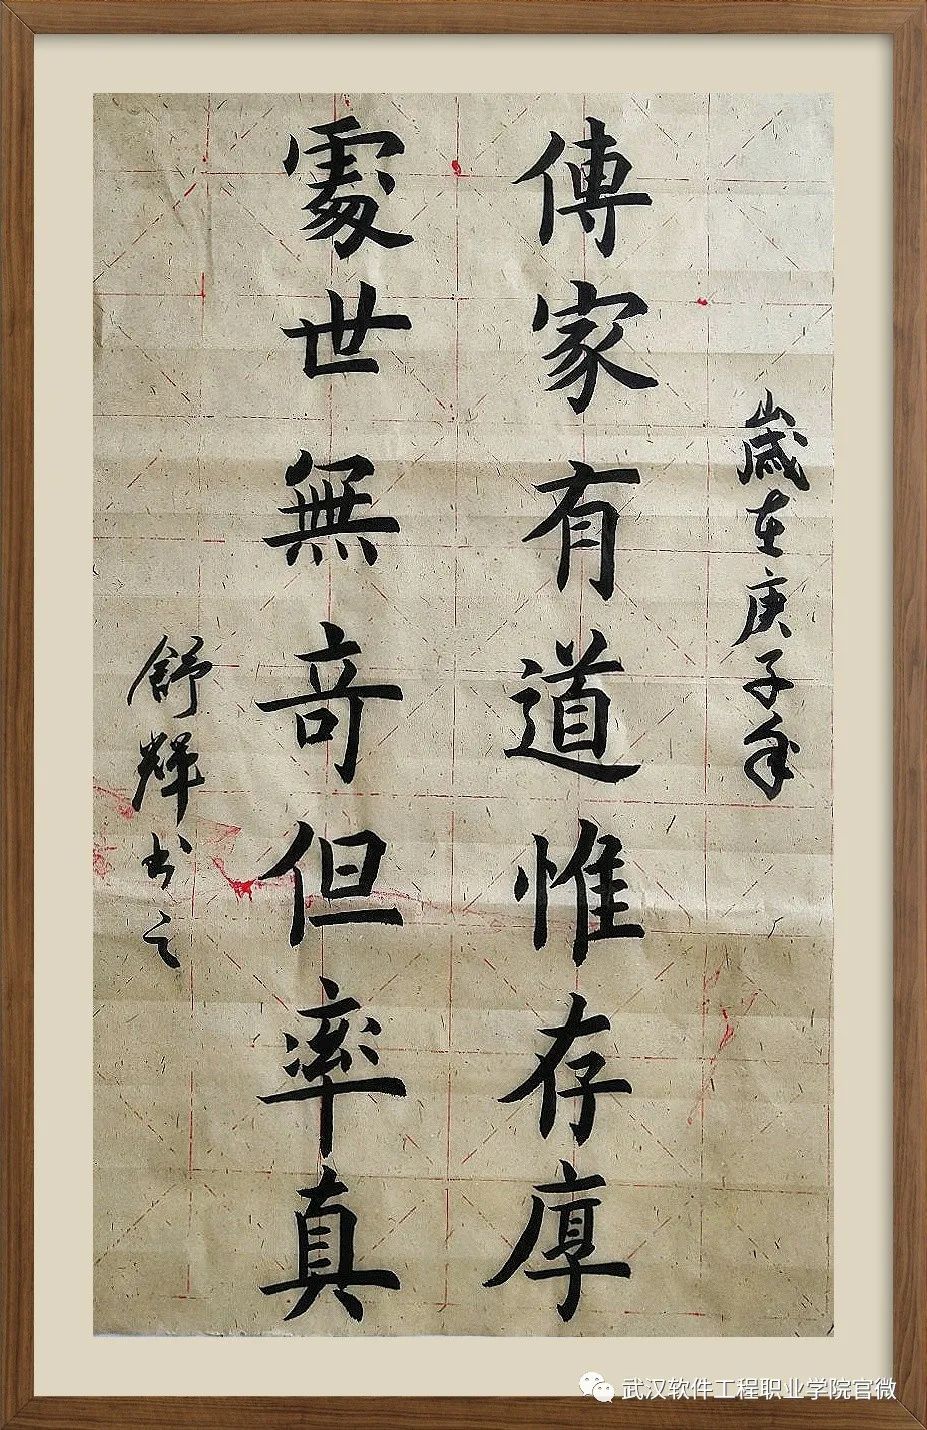 歲在庚子年
傳家有道惟存厚
處世無奇但率真
舒輝书之
武汉软件工程职业学院官微